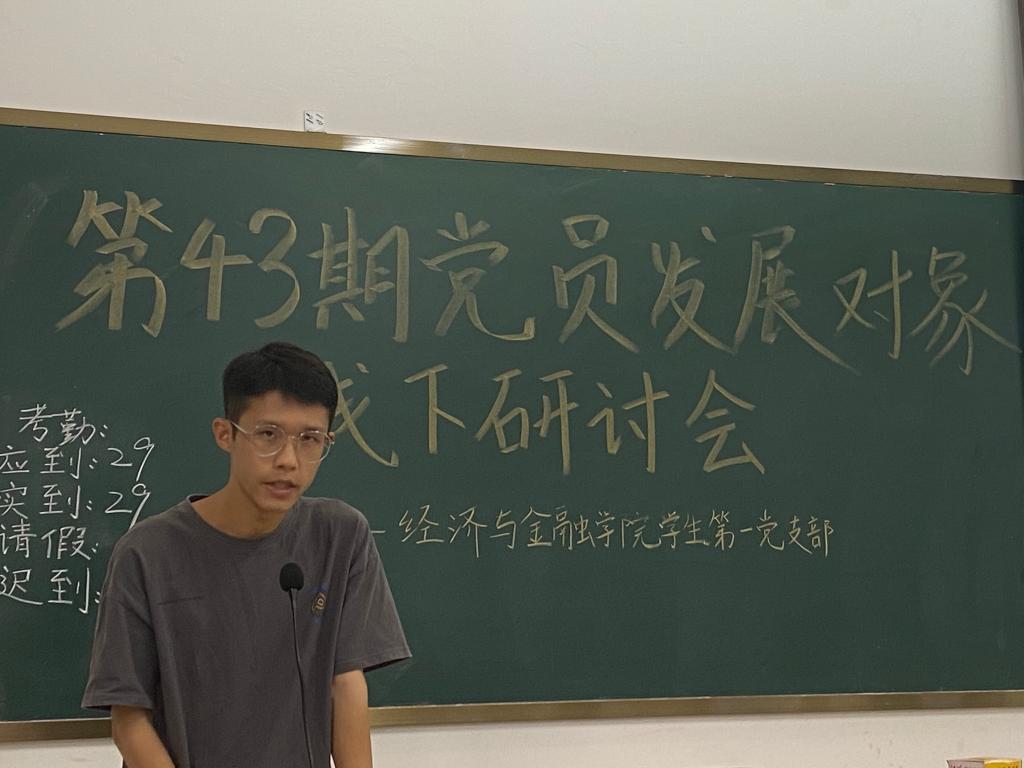 第43期党员发展对象
线下研讨会
经济与金融学院学生第一党支部
考勤:
应到:29
实到:29
请假:
迟到: